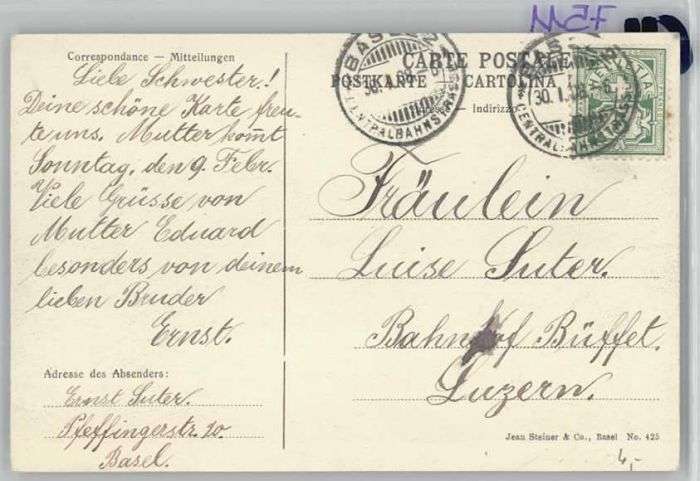 Correspondance — Mitteilungen
Liebe Schwester!
Deine schöne Karte freu-
te uns. Mutter kom̅t
Sonntag, den 9. Febr.
Viele Grüsse von
Mutter Eduard
besonders von deinem
lieben Bruder
Ernst.
Adresse des Absenders:
Ernst Suter.
Pfeffingerstr. 20.
Basel.
CARTE POSTALE
POSTKARTE CARTOLINA
Indirizzo
BASEL
30.I.08
CENTRALBAHNSTRASSE
BASEL
30.I.08
CENTRALBAHNSTRASSE
HELVETIA
Fräulein
Luise Suter.
Bahnhof Büffet.
Luzern.
Jean Steiner & Co., Basel No. 425
4,-